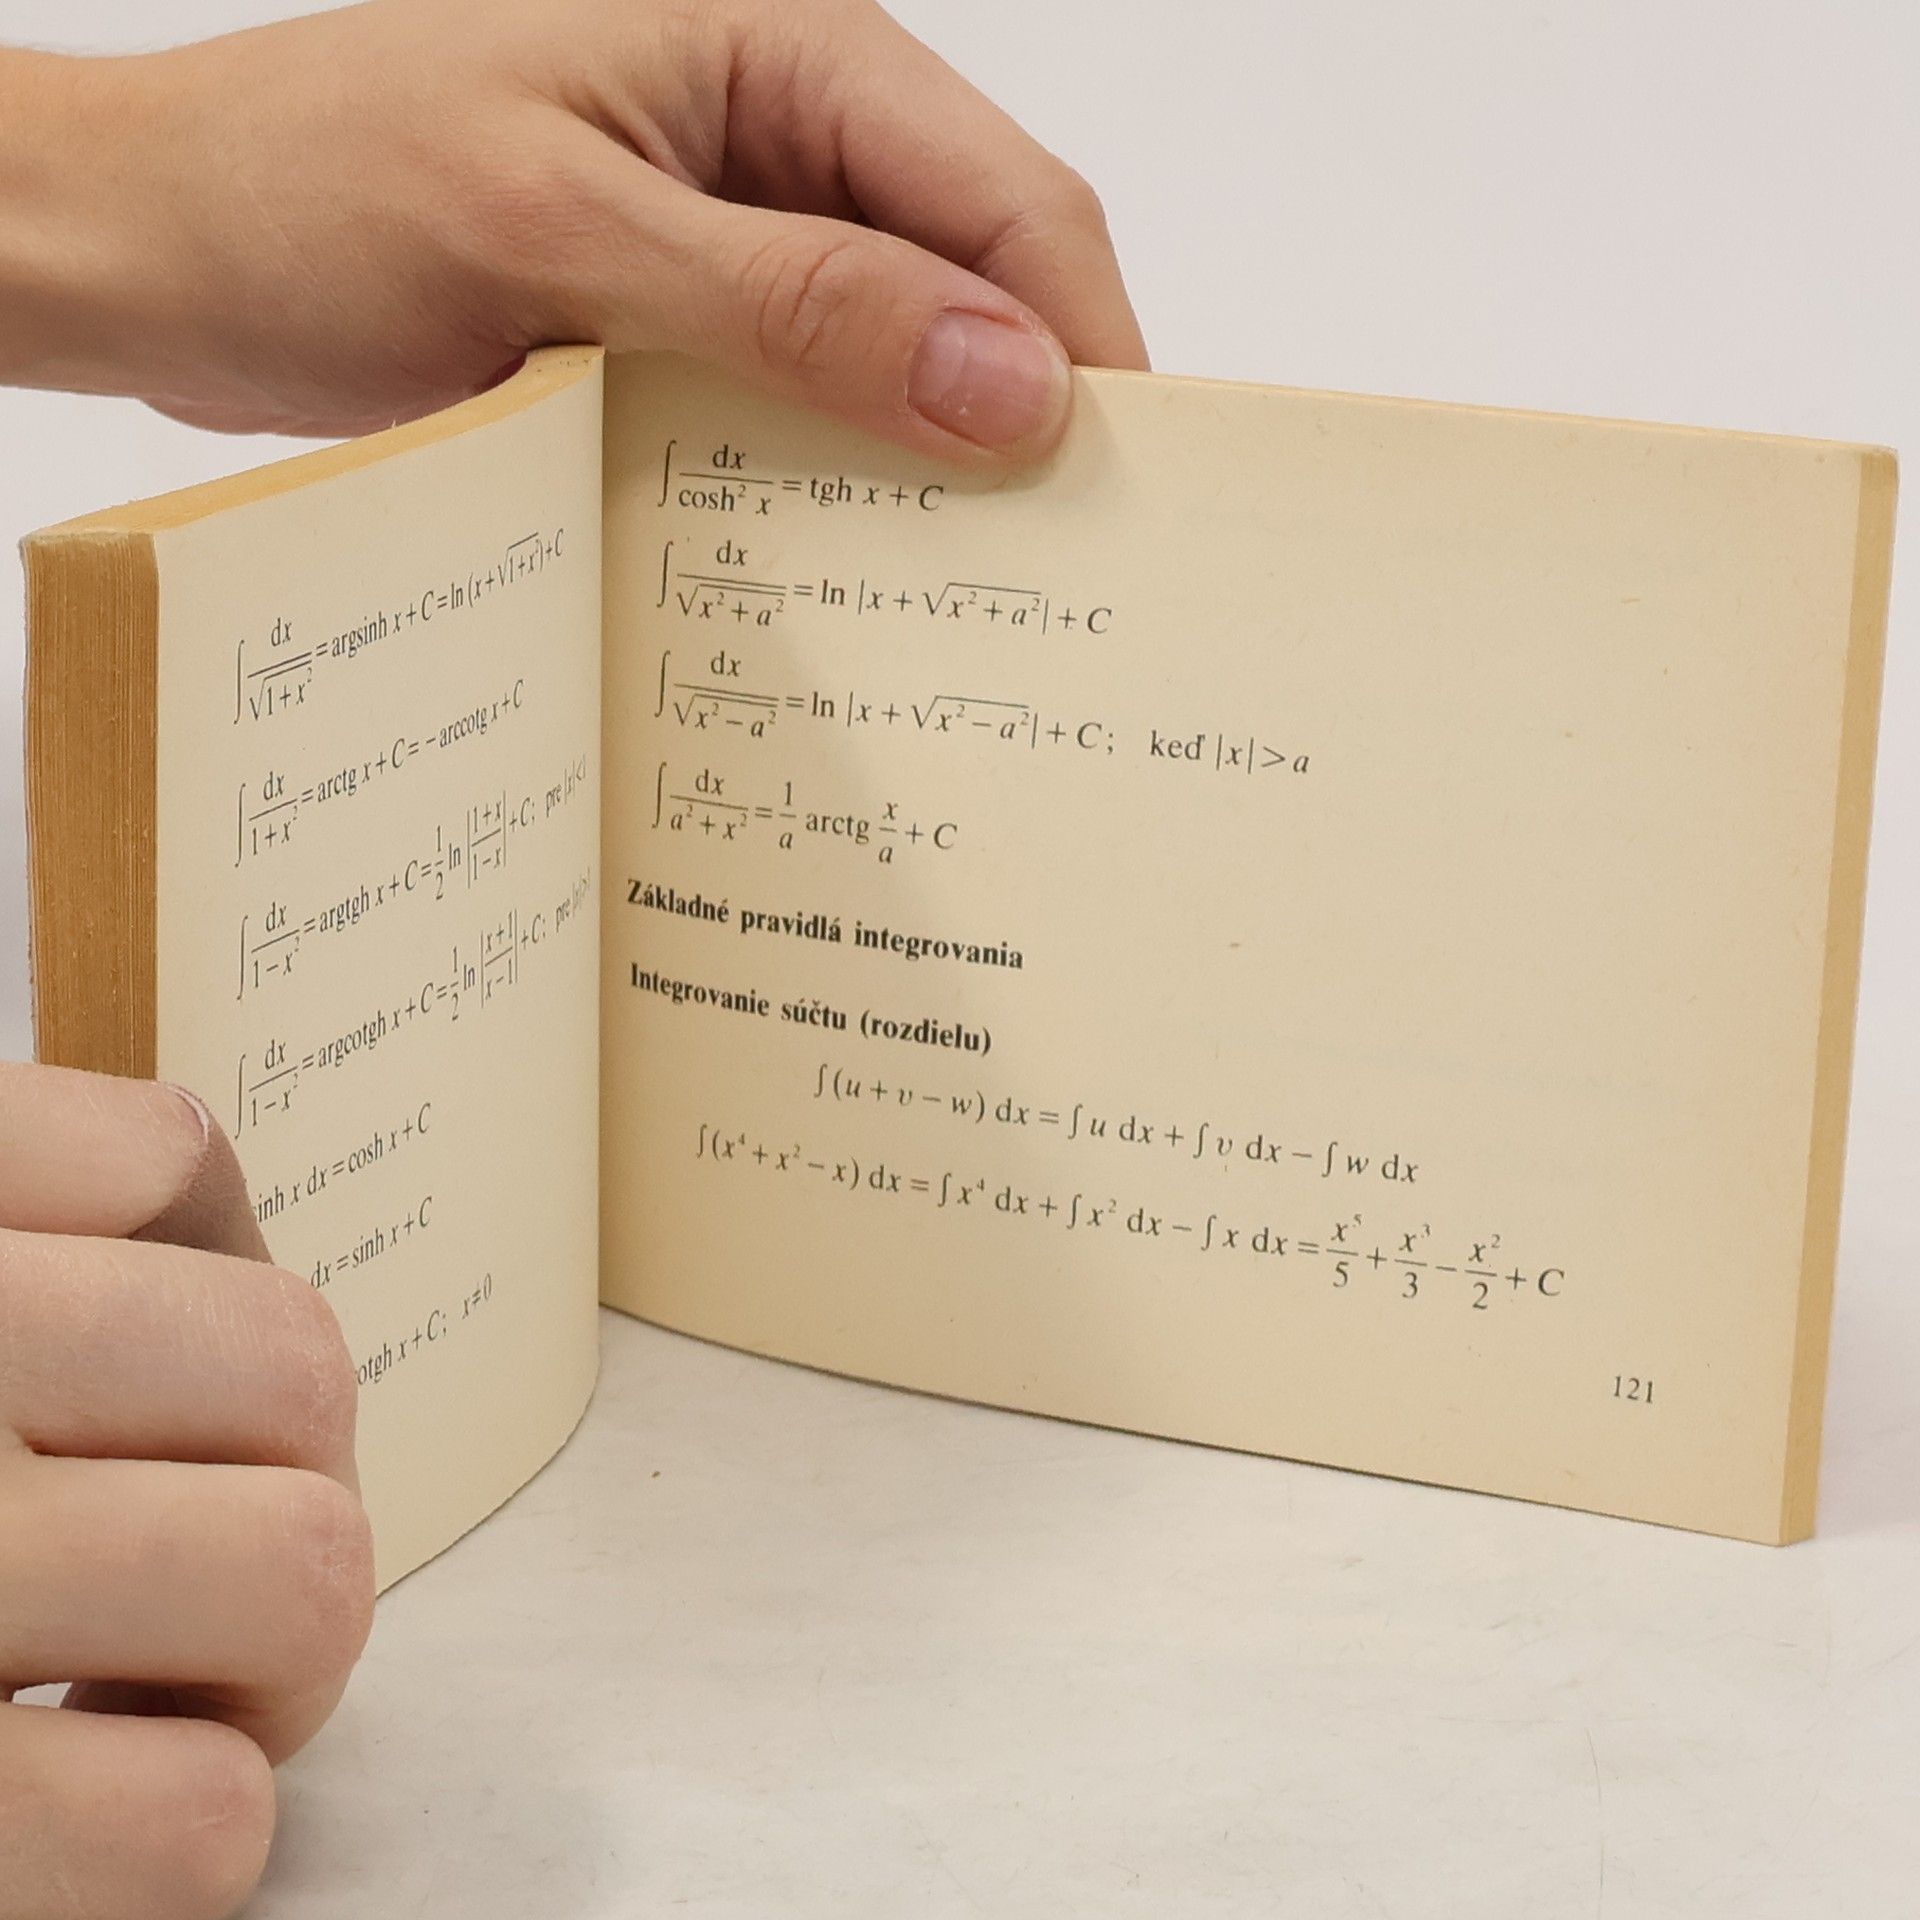 ∫ dx/√(1+x²) = argsinh x + C = ln (x + √(1+x²)) + C
∫ dx/(1+x²) = arctg x + C = − arccotg x + C
∫ dx/(1−x²) = argtgh x + C = 1/2 ln |(1+x)/(1−x)| + C; pre |x|<1
∫ dx/(1−x²) = argcotgh x + C = 1/2 ln |(x+1)/(x−1)| + C; pre |x|>1
inh x dx = cosh x + C
dx = sinh x + C
otgh x + C; x≠0
∫ dx/cosh² x = tgh x + C
∫ dx/√(x² + a²) = ln |x + √(x² + a²)| + C
∫ dx/√(x² − a²) = ln |x + √(x² − a²)| + C; keď |x| > a
∫ dx/(a² + x²) = 1/a arctg x/a + C
Základné pravidlá integrovania
Integrovanie súčtu (rozdielu)
∫(u + v − w) dx = ∫ u dx + ∫ v dx − ∫ w dx
∫(x⁴ + x² − x) dx = ∫ x⁴ dx + ∫ x² dx − ∫ x dx = x⁵/5 + x³/3 − x²/2 + C
121